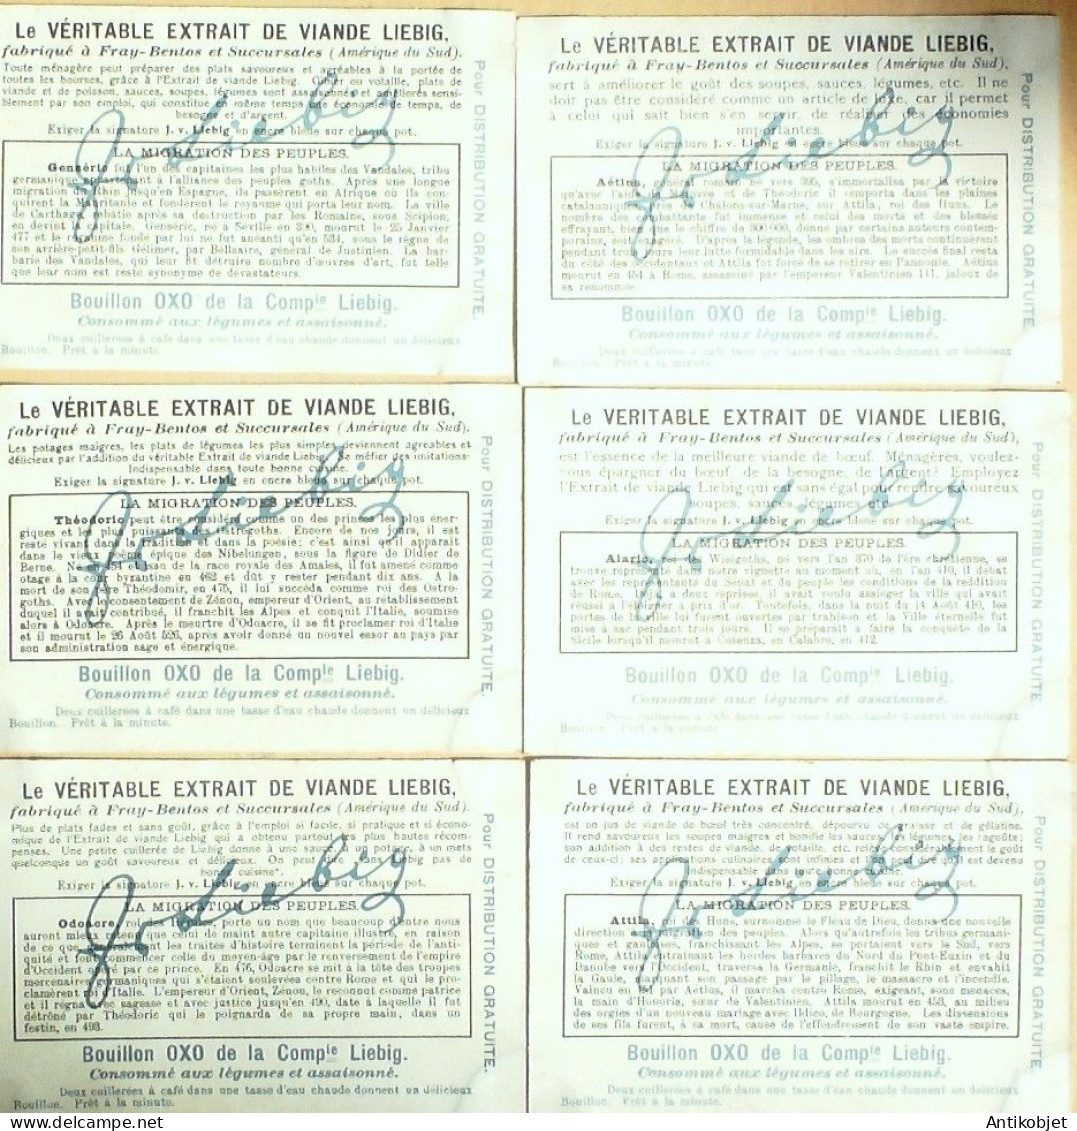 Le VÉRITABLE EXTRAIT DE VIANDE LIEBIG,
fabriqué à Fray-Bentos et Succursales (Amérique du Sud).
Toute ménagère peut préparer des plats savoureux et agréables à la portée de
toutes les bourses, grâce à l'Extrait de viande Liebig. Gibier ou volaille, plats de
viande et de poisson, sauces, soupes, légumes sont assaisonnés et améliorés sensi-
blement par son emploi, qui constitue en même temps une économie de temps, de
besogne et d'argent.
Exiger la signature J. v. Liebig en encre bleue sur chaque pot.
LA MIGRATION DES PEUPLES.
Genséric fut l'un des capitaines les plus habiles des Vandales, tribu
germanique appartenant à l'alliance des peuples goths. Après une longue
migration du Rhin jusqu'en Espagne, ils passèrent en Afrique où ils con-
quirent la Mauritanie et fondèrent le royaume qui porta leur nom. La ville
de Carthage, rebâtie après sa destruction par les Romains, sous Scipion,
en devint la capitale. Genséric, né à Séville en 390, mourut le 25 Janvier
477 et le royaume fondé par lui ne fut anéanti qu'en 534, sous le règne de
son arrière-petit-fils Gelimer, par Bélisaire, général de Justinien. La bar-
barie des Vandales, qui leur fit détruire nombre d'œuvres d'art, fut telle
que leur nom est resté synonyme de dévastateurs.
Bouillon OXO de la Compie Liebig.
Consommé aux légumes et assaisonné.
Deux cuillerées à café dans une tasse d'eau chaude donnent un délicieux
Bouillon. Prêt à la minute.
Pour DISTRIBUTION GRATUITE.
J v Liebig
Le VÉRITABLE EXTRAIT DE VIANDE LIEBIG,
fabriqué à Fray-Bentos et Succursales (Amérique du Sud),
sert à améliorer le goût des soupes, sauces, légumes, etc. Il ne
doit pas être considéré comme un article de luxe, car il permet
à celui qui sait bien s'en servir, de réaliser des économies
importantes.
Exiger la signature J. v. Liebig en encre bleue sur chaque pot.
LA MIGRATION DES PEUPLES.
Aétius, général romain né vers 395, s'immortalisa par la victoire
qu'avec l'aide de Mérovée et de Théodoric il remporta dans les plaines
catalauniques, près de Châlons-sur-Marne, sur Attila, roi des Huns. Le
nombre des combattants fut immense et celui des morts et des blessés
effrayant, bien que le chiffre de 300000, donné par certains auteurs contem-
porains, soit exagéré. D'après la légende, les ombres des morts continuèrent
pendant trois jours leur lutte formidable dans les airs. Le succès final resta
du côté des Occidentaux et Attila fut forcé de se retirer en Pannonie. Aétius
mourut en 454 à Rome, assassiné par l'empereur Valentinien 111, jaloux de
sa renommée.
Bouillon OXO de la Compie Liebig.
Consommé aux légumes et assaisonné.
Deux cuillerées à café dans une tasse d'eau chaude donnent un délicieux
Bouillon. Prêt à la minute.
Pour DISTRIBUTION GRATUITE.
J v Liebig
Le VÉRITABLE EXTRAIT DE VIANDE LIEBIG,
fabriqué à Fray-Bentos et Succursales (Amérique du Sud).
Les potages maigres, les plats de légumes les plus simples deviennent agréables et
délicieux par l'addition du véritable Extrait de viande Liebig. Se méfier des imitations.
Indispensable dans toute bonne cuisine.
Exiger la signature J. v. Liebig en encre bleue sur chaque pot.
LA MIGRATION DES PEUPLES.
Théodoric peut être considéré comme un des princes les plus éner-
giques et les plus puissants des Ostrogoths. Encore de nos jours, il est
resté vivant dans la tradition et dans la poésie: c'est ainsi qu'il apparaît
dans le vieux poème épique des Nibelungen, sous la figure de Didier de
Berne. Né en 454 et issu de la race royale des Amales, il fut amené comme
otage à la cour byzantine en 462 et dût y rester pendant dix ans. A la
mort de son père Théodomir, en 475, il lui succéda comme roi des Ostro-
goths. Avec le consentement de Zénon, empereur d'Orient, au rétablissement
duquel il avait contribué, il franchit les Alpes et conquit l'Italie, soumise
alors à Odoacre. Après le meurtre d'Odoacre, il se fit proclamer roi d'Italie
et il mourut le 26 Août 526, après avoir donné un nouvel essor au pays par
son administration sage et énergique.
Bouillon OXO de la Compie Liebig.
Consommé aux légumes et assaisonné.
Deux cuillerées à café dans une tasse d'eau chaude donnent un délicieux
Bouillon. Prêt à la minute.
Pour DISTRIBUTION GRATUITE.
J v Liebig
Le VÉRITABLE EXTRAIT DE VIANDE LIEBIG,
fabriqué à Fray-Bentos et Succursales (Amérique du Sud),
est l'essence de la meilleure viande de bœuf. Ménagères, voulez-
vous épargner du bœuf, de la besogne, de l'argent? Employez
l'Extrait de viande Liebig qui est sans égal pour rendre savoureux
soupes, sauces, légumes etc.
Exiger la signature J. v. Liebig en encre bleue sur chaque pot.
LA MIGRATION DES PEUPLES.
Alaric, roi des Wisigoths, né vers l'an 370 de l'ère chrétienne, se
trouve représenté dans notre vignette au moment où, en l'an 410, il débat
avec les représentants du Sénat et du peuple les conditions de la reddition
de Rome. à deux reprises, il avait voulu assiéger la ville qui avait
réussi à l'éloigner à prix d'or. Toutefois, dans la nuit du 14 Août 410, les
portes de la ville lui furent ouvertes par trahison et la Ville éternelle fut
mise à sac pendant trois jours. Il se préparait à faire la conquête de la
Sicile lorsqu'il mourut à Cosenza, en Calabre, en 412.
Bouillon OXO de la Compie Liebig.
Consommé aux légumes et assaisonné.
Deux cuillerées à café dans une tasse d'eau chaude donnent un délicieux
Bouillon. Prêt à la minute.
Pour DISTRIBUTION GRATUITE.
J v Liebig
Le VÉRITABLE EXTRAIT DE VIANDE LIEBIG,
fabriqué à Fray-Bentos et Succursales (Amérique du Sud).
Plus de plats fades et sans goût, grâce à l'emploi si facile, si pratique et si écono-
mique de l'Extrait de viande Liebig qui a obtenu partout les plus hautes récom-
penses. Une petite cuillerée de Liebig donne à une sauce, à un potage, à un mets
quelconque un goût savoureux et délicieux. On peut dire: "Sans Liebig pas de
bonne cuisine".
Exiger la signature J. v. Liebig en encre bleue sur chaque pot.
LA MIGRATION DES PEUPLES.
Odoacre, roi des Hérules, porte un nom que beaucoup d'entre nous
auront mieux retenu que celui de maint autre capitaine illustre, en raison
de ce que les traités d'histoire terminent la période de l'anti-
quité et font commencer celle du moyen-âge par le renversement de l'empire
d'Occident opéré par ce prince. En 476, Odoacre se mit à la tête des troupes
mercenaires germaniques qui s'étaient soulevées contre Rome et qui le pro-
clamèrent roi d'Italie. L'empereur d'Orient, Zénon, le reconnut comme patrice
et il régna avec sagesse et avec justice jusqu'en 490, date à laquelle il fut
détrôné par Théodoric qui le poignarda de sa propre main, dans un
festin, en 493.
Bouillon OXO de la Compie Liebig.
Consommé aux légumes et assaisonné.
Deux cuillerées à café dans une tasse d'eau chaude donnent un délicieux
Bouillon. Prêt à la minute.
Pour DISTRIBUTION GRATUITE.
J v Liebig
Le VÉRITABLE EXTRAIT DE VIANDE LIEBIG,
fabriqué à Fray-Bentos et Succursales (Amérique du Sud),
est un jus de viande de bœuf très concentré, dépourvu de graisse et de gélatine.
Il rend savoureux les soupes maigres et bonifie les sauces, les légumes, les ragoûts;
son addition à des restes de viande, de volaille, etc. relève considérablement le goût
de ceux-ci; ses applications culinaires sont infinies et l'on peut dire qu'il est devenu
Indispensable dans toute bonne cuisine.
Exiger la signature J. v. Liebig en encre bleue sur chaque pot.
LA MIGRATION DES PEUPLES.
Attila, roi des Huns, surnommé le Fléau de Dieu, donna une nouvelle
direction à la migration des peuples. Alors qu'autrefois les tribus germani-
ques et gauloises, franchissant les Alpes, se portaient vers le Sud, vers
Rome, Attila, entraînant les hordes barbares du Nord du Pont-Euxin et du
Danube vers l'Occident, traversa la Germanie, franchit le Rhin et envahit
la Gaule, marquant son passage par le pillage, le massacre et l'incendie.
Vaincu en 451 par Aetius, il marcha contre Rome, exigeant, sous menaces,
la main d'Honoria, sœur de Valentinien. Attila mourut en 453, au milieu
des orgies d'un nouveau mariage avec Ildico, de Bourgogne. Les dissensions
de ses fils furent, à sa mort, cause de l'effondrement de son vaste empire.
Bouillon OXO de la Compie Liebig.
Consommé aux légumes et assaisonné.
Deux cuillerées à café dans une tasse d'eau chaude donnent un délicieux
Bouillon. Prêt à la minute.
Pour DISTRIBUTION GRATUITE.
J v Liebig
Antikobjet